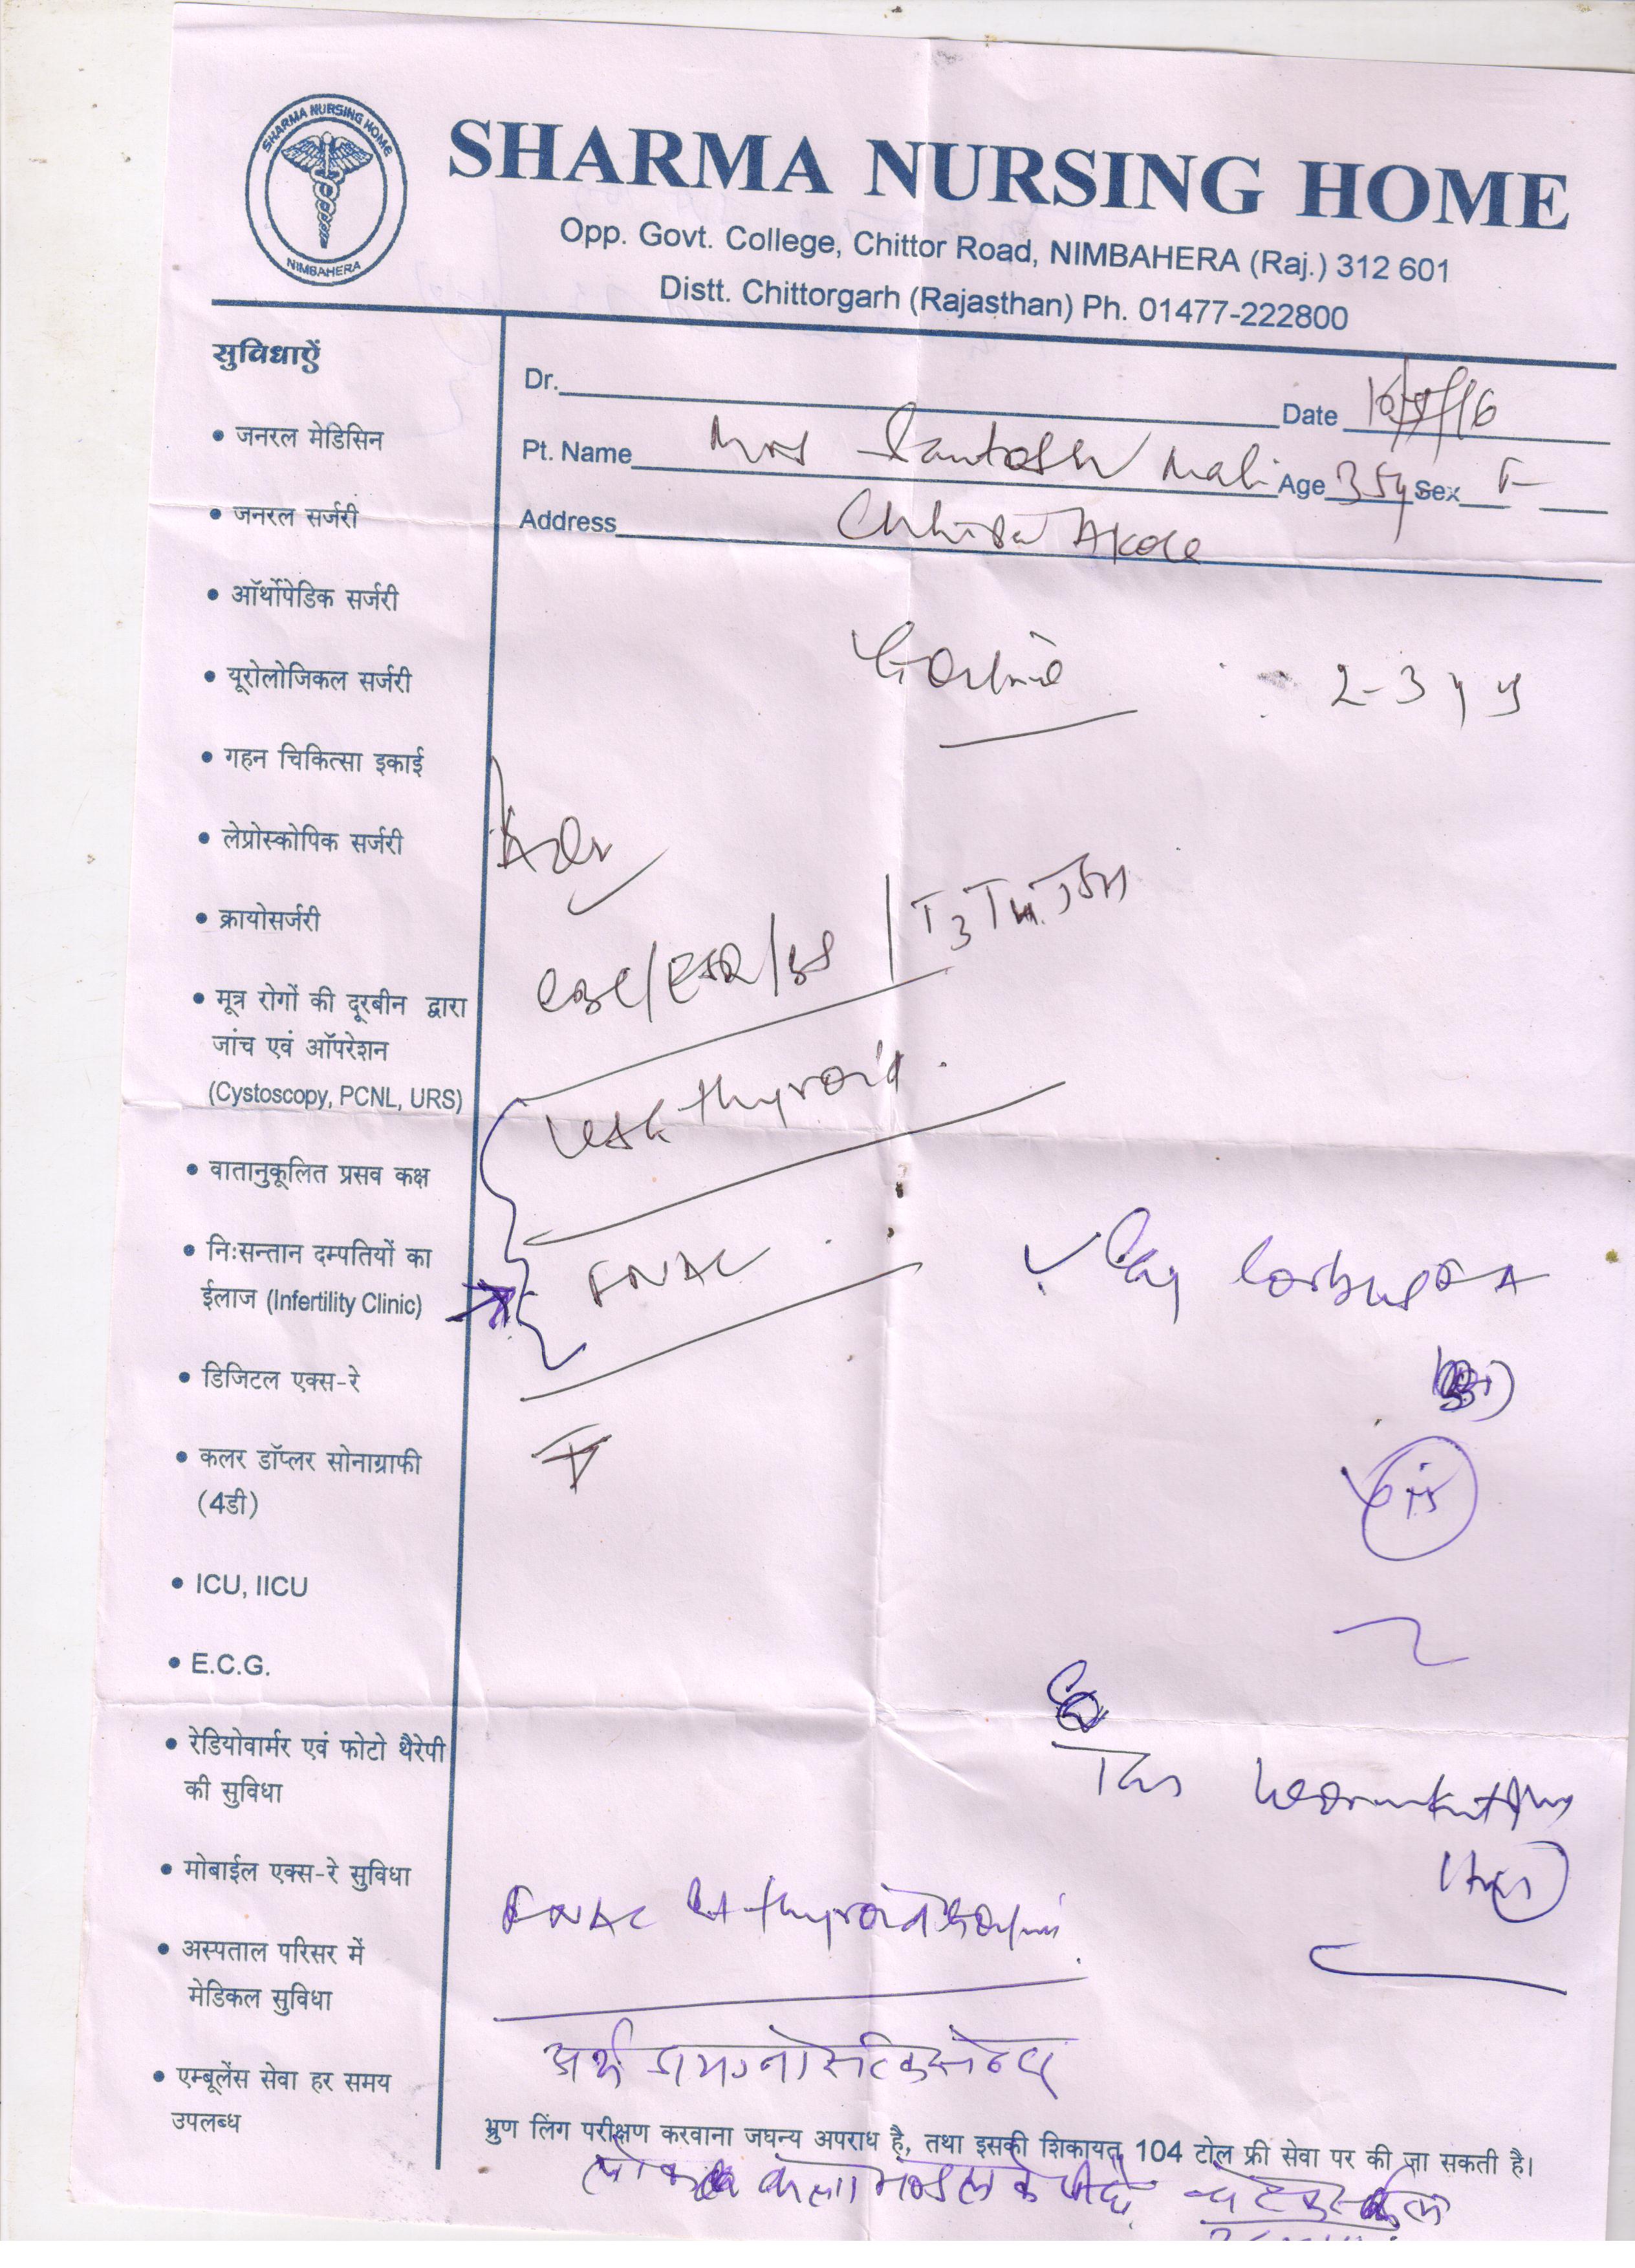 SHARMA NURSING HOME
NIMBAHERA
SHARMA NURSING HOME
Opp. Govt. College, Chittor Road, NIMBAHERA (Raj.) 312 601
Distt. Chittorgarh (Rajasthan) Ph. 01477-222800
Dr.
Date
Pt. Name Mrs Santosh Mali Age 35y Sex F
Address
सुविधाऐं
• जनरल मेडिसिन
• जनरल सर्जरी
• ऑर्थोपेडिक सर्जरी
• यूरोलोजिकल सर्जरी
• गहन चिकित्सा इकाई
• लेप्रोस्कोपिक सर्जरी
• क्रायोसर्जरी
• मूत्र रोगों की दूरबीन द्वारा
जांच एवं ऑपरेशन
(Cystoscopy, PCNL, URS)
• वातानुकूलित प्रसव कक्ष
• निःसन्तान दम्पतियों का
ईलाज (Infertility Clinic)
• डिजिटल एक्स-रे
• कलर डॉप्लर सोनाग्राफी
(4डी)
• ICU, IICU
• E.C.G.
• रेडियोवार्मर एवं फोटो थैरेपी
की सुविधा
• मोबाईल एक्स-रे सुविधा
• अस्पताल परिसर में
मेडिकल सुविधा
• एम्बूलेंस सेवा हर समय
उपलब्ध
2-3 y
Adv
CBC/ESR/BS/T3 T4 TSH
USG thyroid
FNAC
FNAC thyroid
अर्थ डायग्नोस्टिक सेन्टर
भ्रुण लिंग परीक्षण करवाना जघन्य अपराध है, तथा इसकी शिकायत 104 टोल फ्री सेवा पर की जा सकती है।
लोक कला मण्डल के पीछे